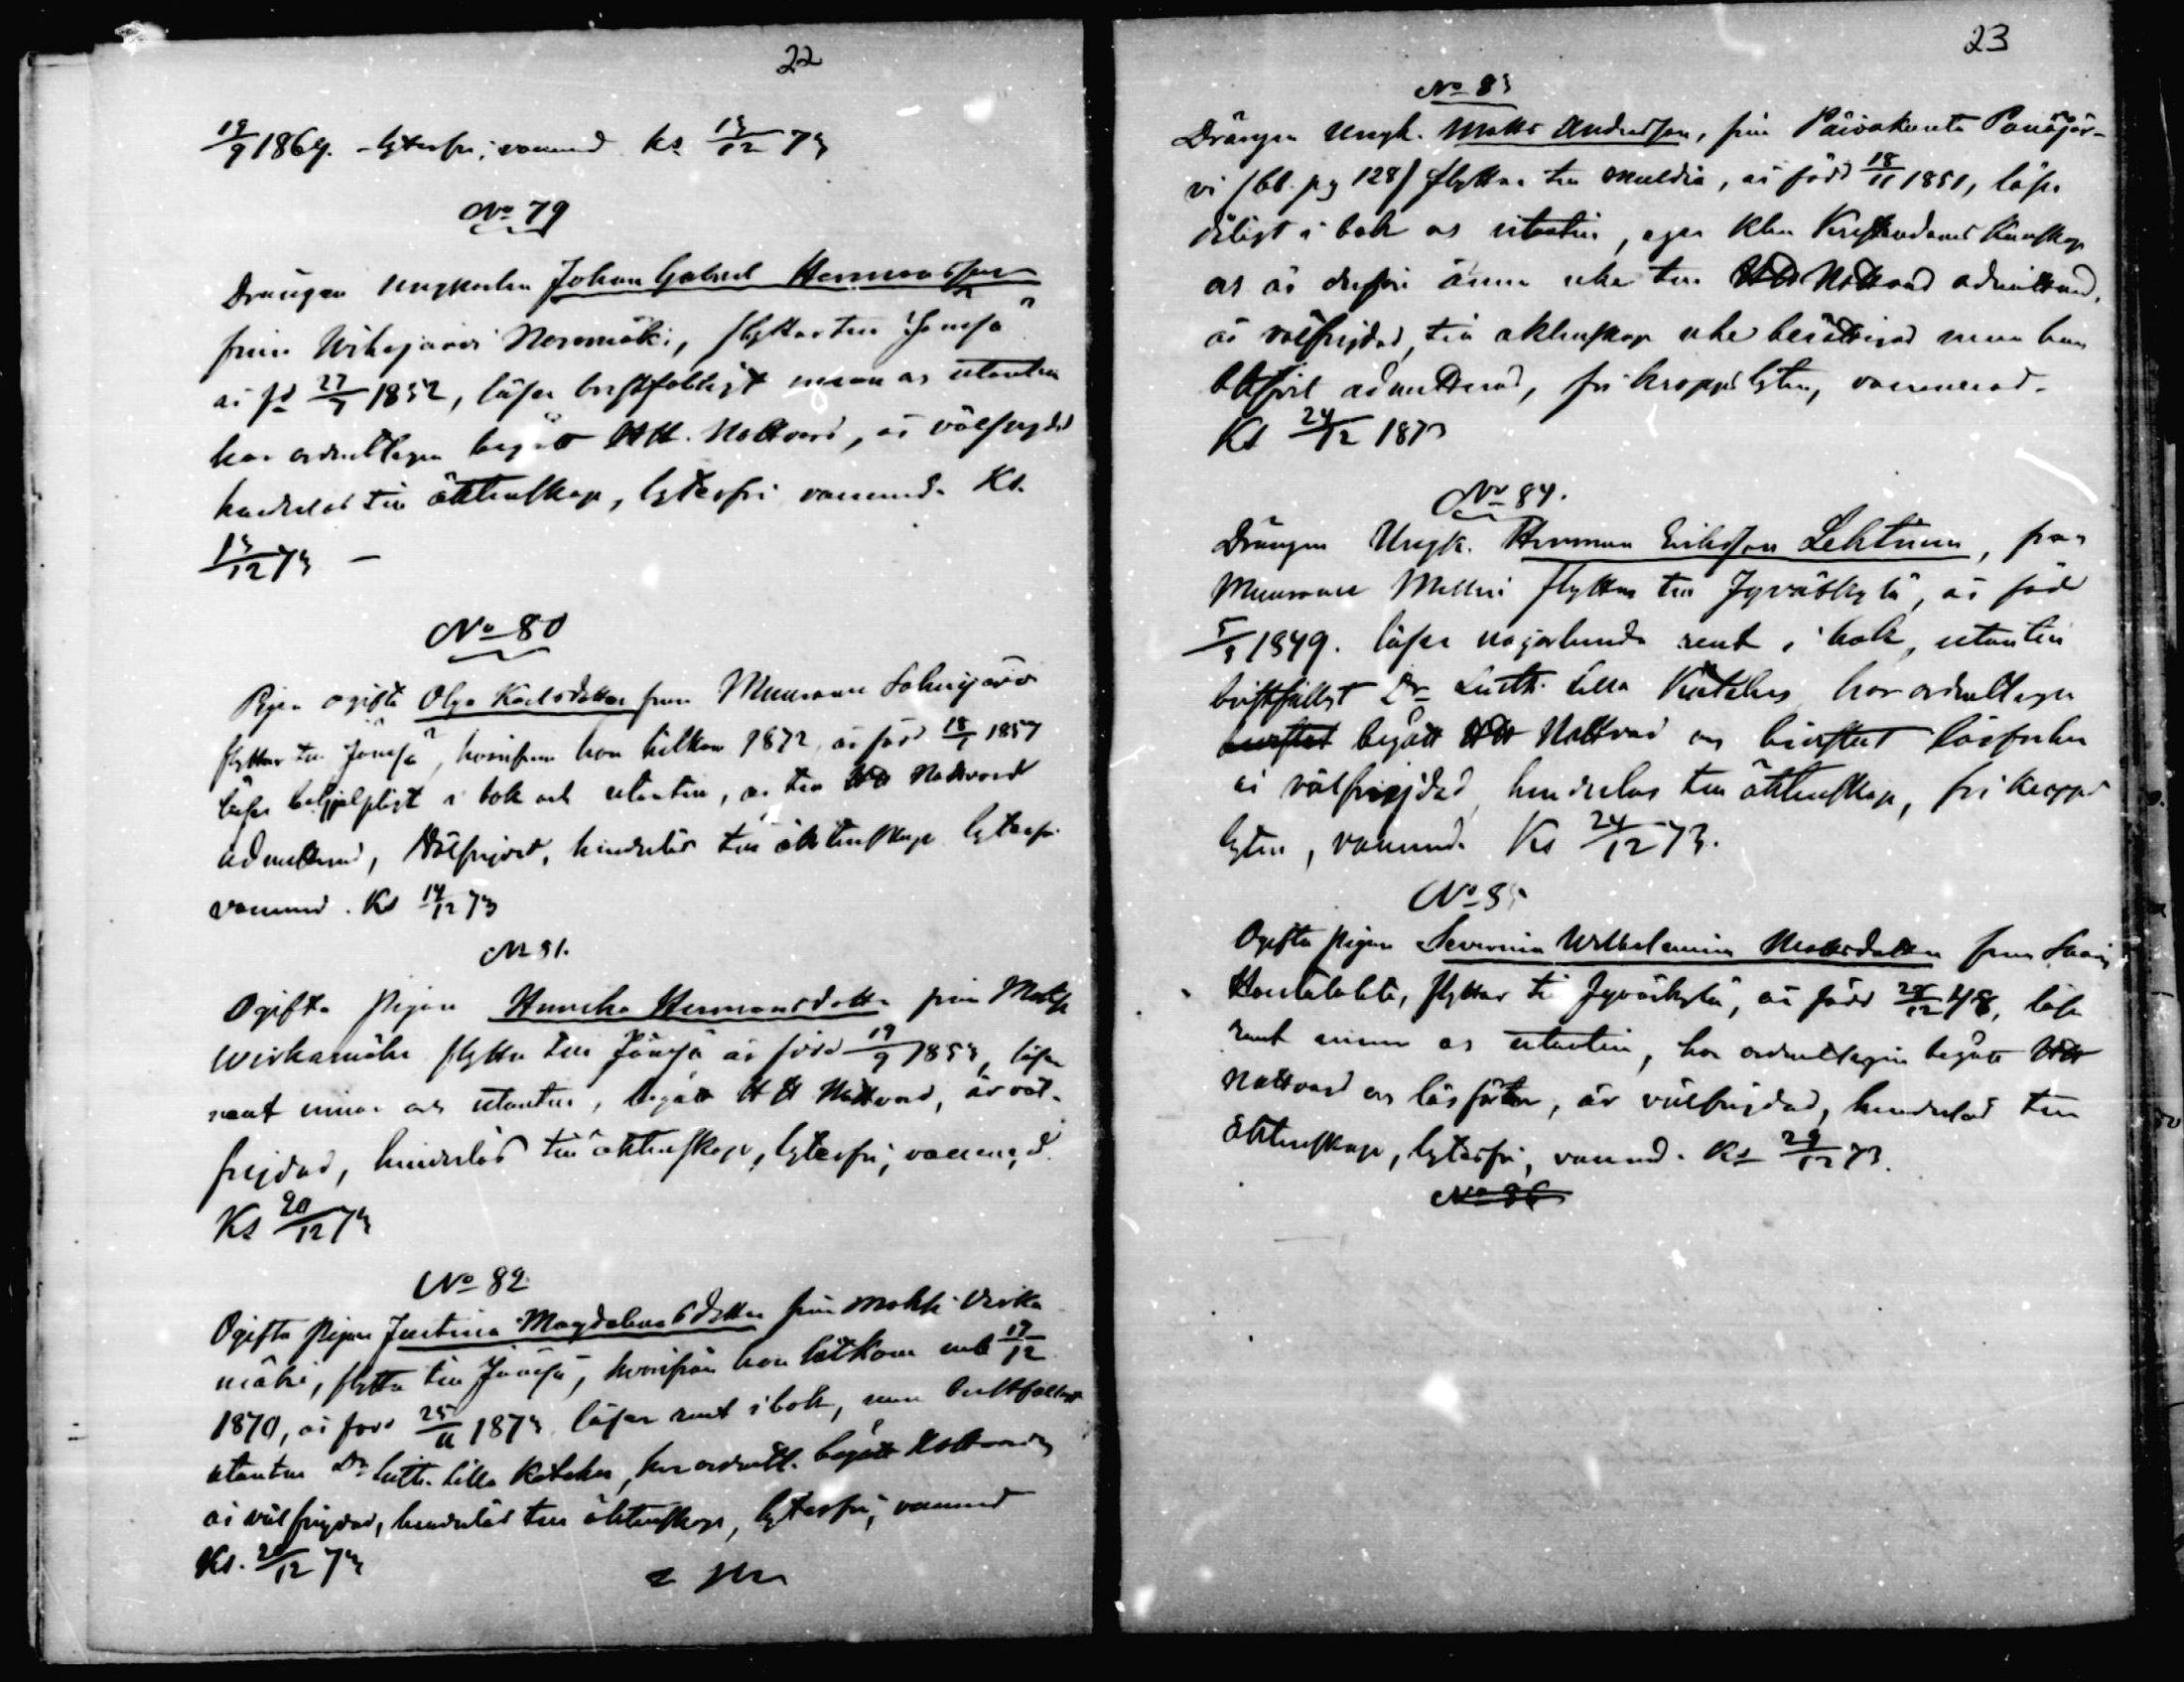 22
19/9 1869. lytesfri, vaccinerad Ks 13/12 73
No 79
Drängen ungkarlen Johan Gabriel Hermansson
från Wihajärvi Noromäki, flyttar till Jämsä
är fd 27/7 1852, läser bristfälligt innan os utantill
har ordentligen begått HH. Nattvard, är välfrejdad
hinderlös till äktenskap, lytesfri vaccinrd. Ks.
13/12 73 –
No 80
Pigan ogifta Olga Karlsdotter från Muurame
flyttar till Jämsä, hvarifrån hon hitkom 1872, är född 18/1 1857
läser behjelpligt i bok och utantill, är till HH Nattvard
admitterad, Välfrejdad, hinderlös till äktenskap lytesfri
vaccinrd. Ks 14/12 73
No 81.
Ogifta Pigan Hermansdotter från
flyttar till Jämsä är född 19/9 1853, läser
rent innan och utantill, begått HH Nattvard, är väl-
frejdad, hinderlös till äktenskap, lytesfri, vaccinerd
Ks 20/12 73
No 82
Ogifta Pigan Justina Magdalena dotter från Virka
mäki, flyttar till Jämsä, hvarifrån hon hitkom 17/12
1870, är född 25/11 läser rent i bok, men bristfälligt
utantill Dr Luth. Lilla Kateches, har ordentl. begått Nattvarden
är välfrejdad, hinderlös till äktenskap, lytesfri, vaccinrd
Ks. 20/12 73
23
No 83
Drängen Ungk. Matts Andersson, från Päivakunta Ponsjär-
vi (bl. pg 128) flyttar till Muldia, är född 18/11 1851, läser
dåligt i bok os utantill, eger klen Kristendoms kunskap
os är derföre ännu icke till HH Nattvard admitterad,
är välfrejdad, till äktenskap icke berättigad innan han
blifvit admitterad, fri kroppslyten, vaccinerad.
Ks 24/12 1873
No 84.
Drängen Ungk. Herman Eriksson Lehtinen, från
Muurame flyttar till Jyväskylä, är född
1849. läser någorlunda rent i bok, utantill
bristfälligt Dr Luth. Lilla Kateches har ordentligen
begått HH Nattvard os bivistat läsförhör
är välfrejdad, hinderlös till äktenskap, fri kropps
lyten, vaccinrd. Ks 24/12 73.
No 85
Ogifta pigan Severina Wilhelmina Mattsdotter från
flyttar till Jyväskylä, är född 12 48, läser
rent innan os utantill, har ordentligen begått HH
Nattvard os läsförhör, är välfrejdad, hinderlös till
äktenskap, lytesfri, vaccinrd. Ks 29/12 73.
No 86